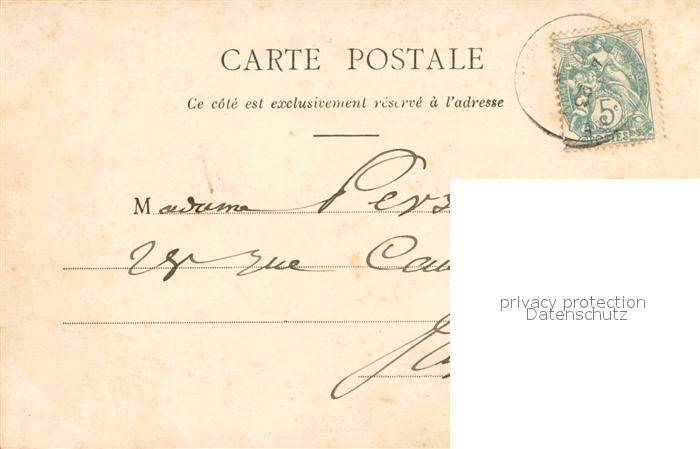 CARTE POSTALE
Ce côté est exclusivement réservé à l'adresse
5c
POSTES
Madame Pers
rue Cau
privacy protection
Datenschutz